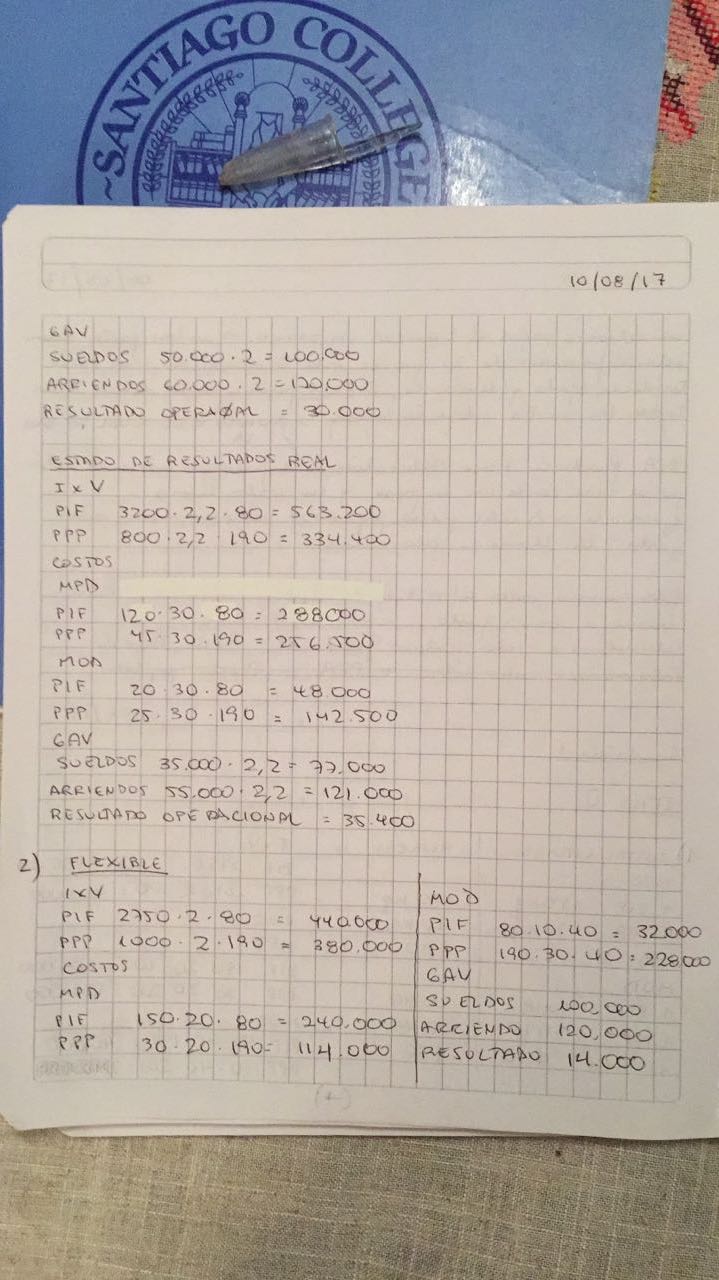 ~SANTIAGO COLLEGE
10/08/17
GAV
SUELDOS 50.000 · 2 = 100,000
ARRIENDOS 60.000 · 2 = 120,000
RESULTADO OPERAØAL = 30.000
ESTADO DE RESULTADOS REAL
IxV
PIF 3200 · 2,2 · 80 = 563.200
PPP 800 · 2,2 · 190 = 334.400
COSTOS
MPD
PIF 120 · 30 · 80 = 288000
PPP 45 · 30 · 190 = 256.500
MOD
PIF 20 · 30 · 80 = 48.000
PPP 25 · 30 · 190 = 142.500
GAV
SUELDOS 35.000 · 2,2 = 77.000
ARRIENDOS 55.000 · 2,2 = 121.000
RESULTADO OPERACIONAL = 35.400
2) FLEXIBLE
IxV
PIF 2750 · 2 · 80 = 440.000
PPP 1000 · 2 · 190 = 380.000
COSTOS
MPD
PIF 150 · 20 · 80 = 240.000
PPP 30 · 20 · 190 = 114.000
MOD
PIF 80 · 10 · 40 = 32.000
PPP 190 · 30 · 40 = 228.000
GAV
SUELDOS 100,000
ARRIENDO 120,000
RESULTADO 14.000